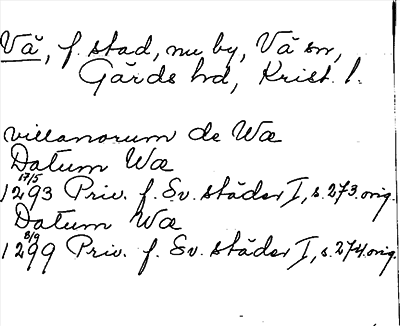 Vä, f. stad, nu by, Vä sn,
Gärds hd, Krist. l.
villanorum de Wæ
Datum Wæ
17/5
1293 Priv. f. Sv. städer I, s. 273. orig.
Datum Wæ
8/9
1299 Priv. f. Sv. städer I, s. 274. orig.